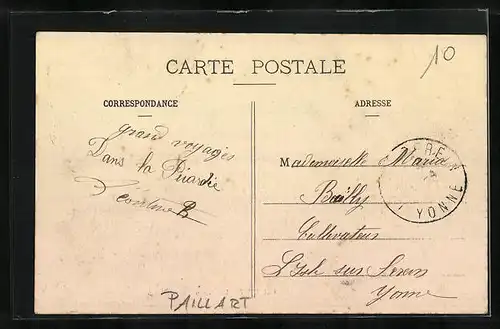 10
CARTE POSTALE
CORRESPONDANCE
ADRESSE
grand voyages
Dans la
Mademoiselle Maria
Bailly
Cultivateur
L'Isle sur Serein
Yonne
YONNE
PAILLART